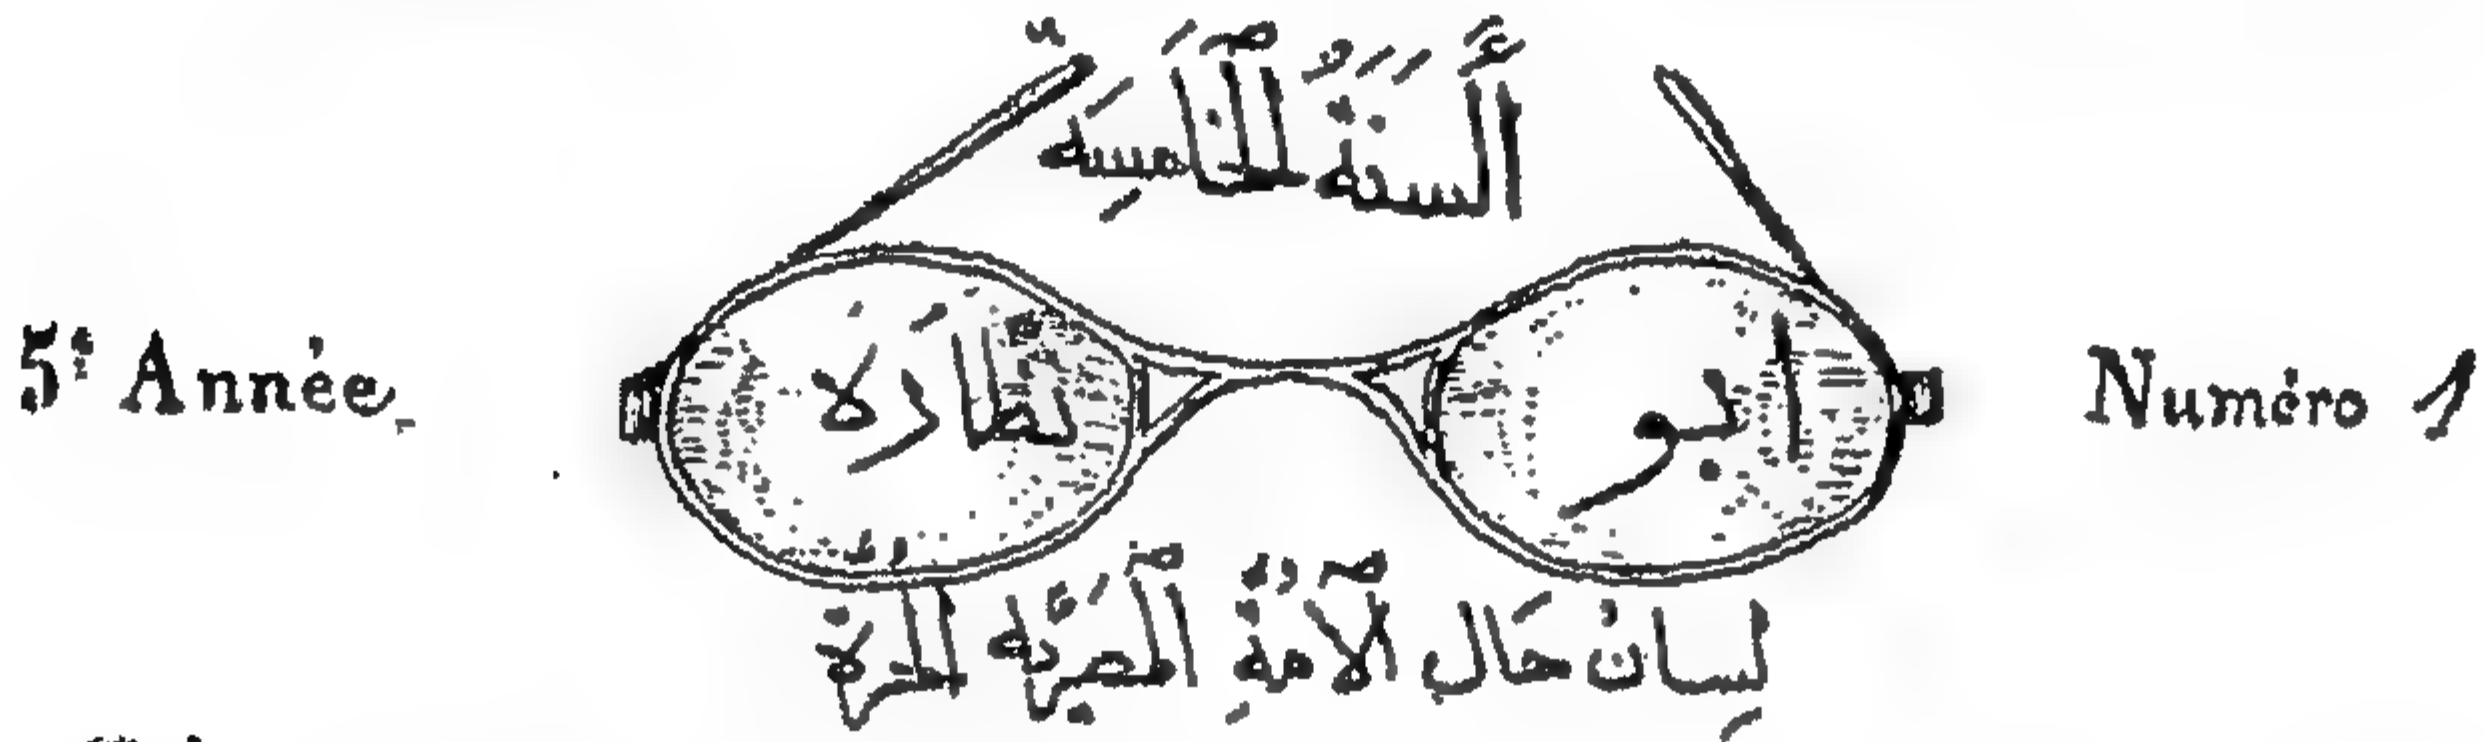 أَلسَّنَةُ ٱلْخَامِسَة
5ᵉ Année
ابو نظارة
Numéro 1
لِسَانُ حَالِ ٱلْأُمَّةِ ٱلْمِصْرِيَّة الحُرَّة